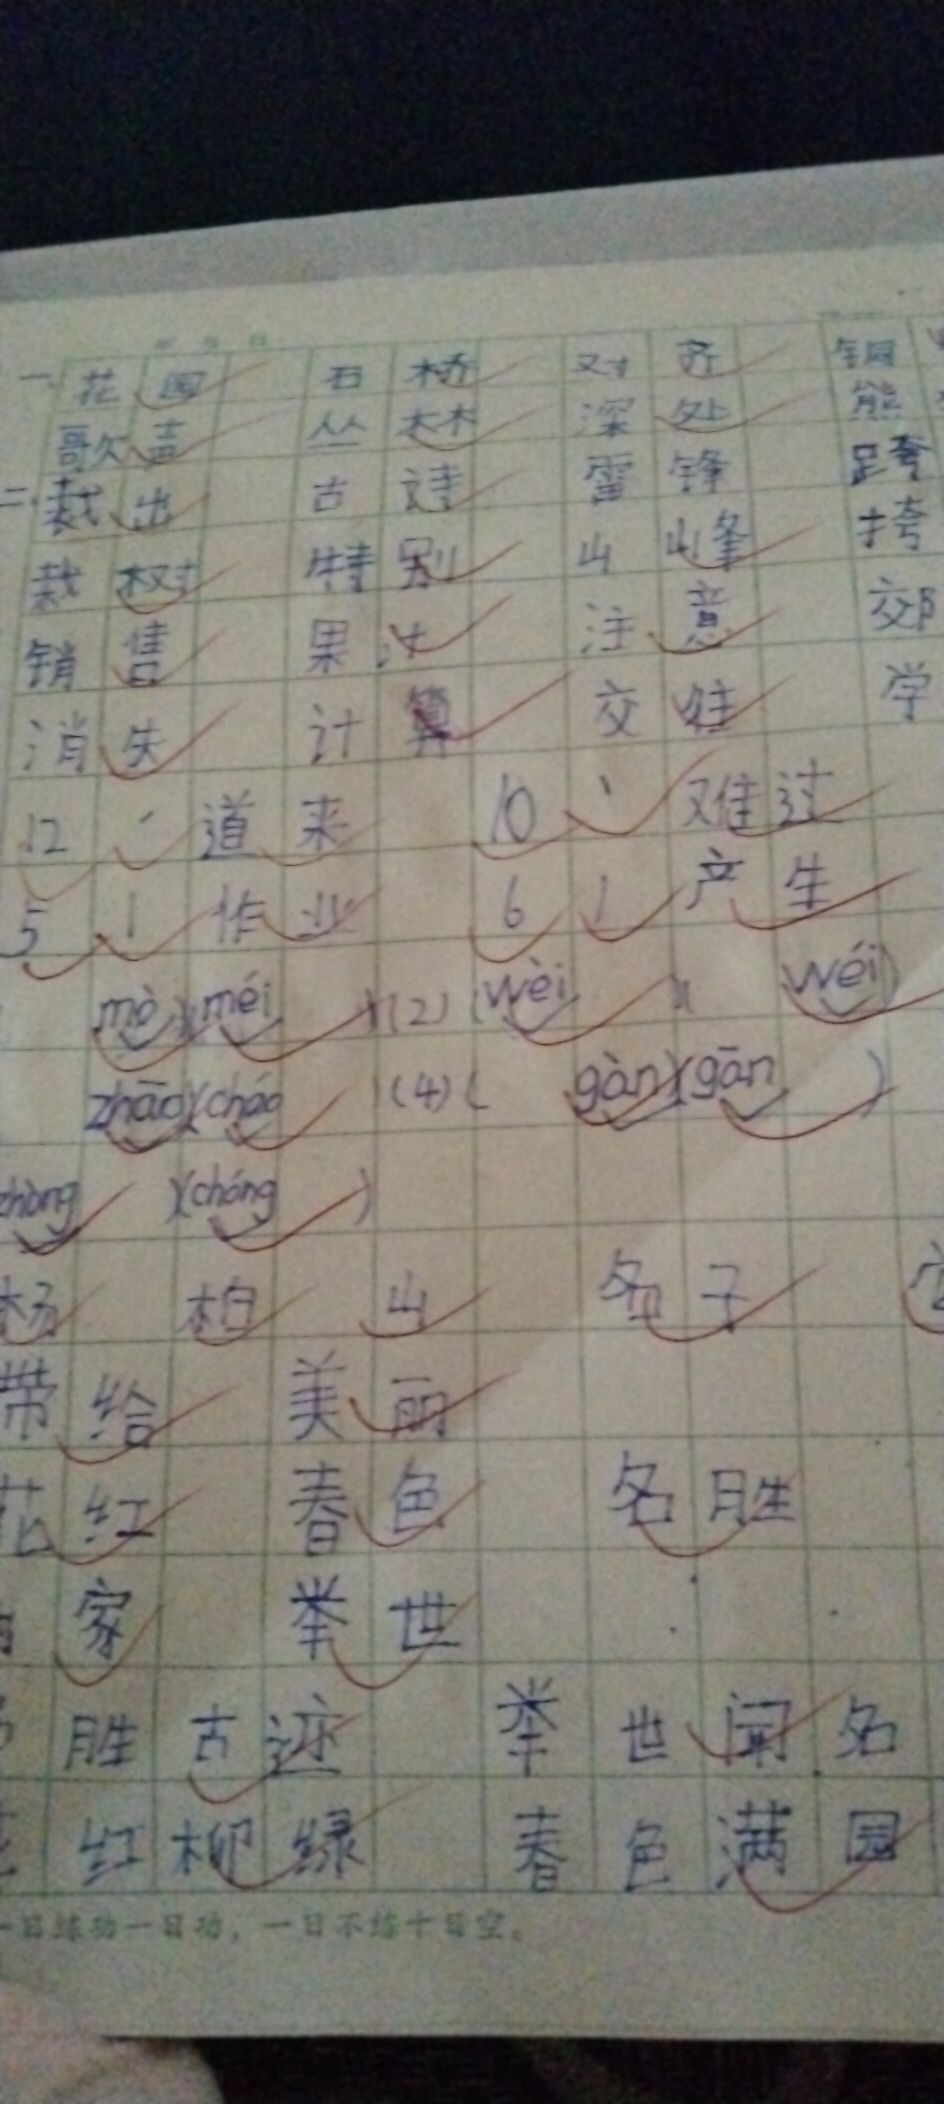 一、花园 石桥 对齐 铜
歌声 丛林 深处 熊
二、裁出 古诗 雷锋 跨
栽树 特别 山峰 挎
销售 果汁 注意 郊
消失 计算 交往 学
12 ˊ 道来 10 ˋ 难过
5 丨 作业 6 丿 产生
mò)(méi )(2)(wèi )( wéi)
zhāo)(cháo )(4)( gàn)(gān )
zhòng )(chóng )
杨 柏 山 名子
带给 美丽
花红 春色 名胜
家 举世
胜古迹 举世闻名
红柳绿 春色满园
一日练功一日功，一日不练十日空。